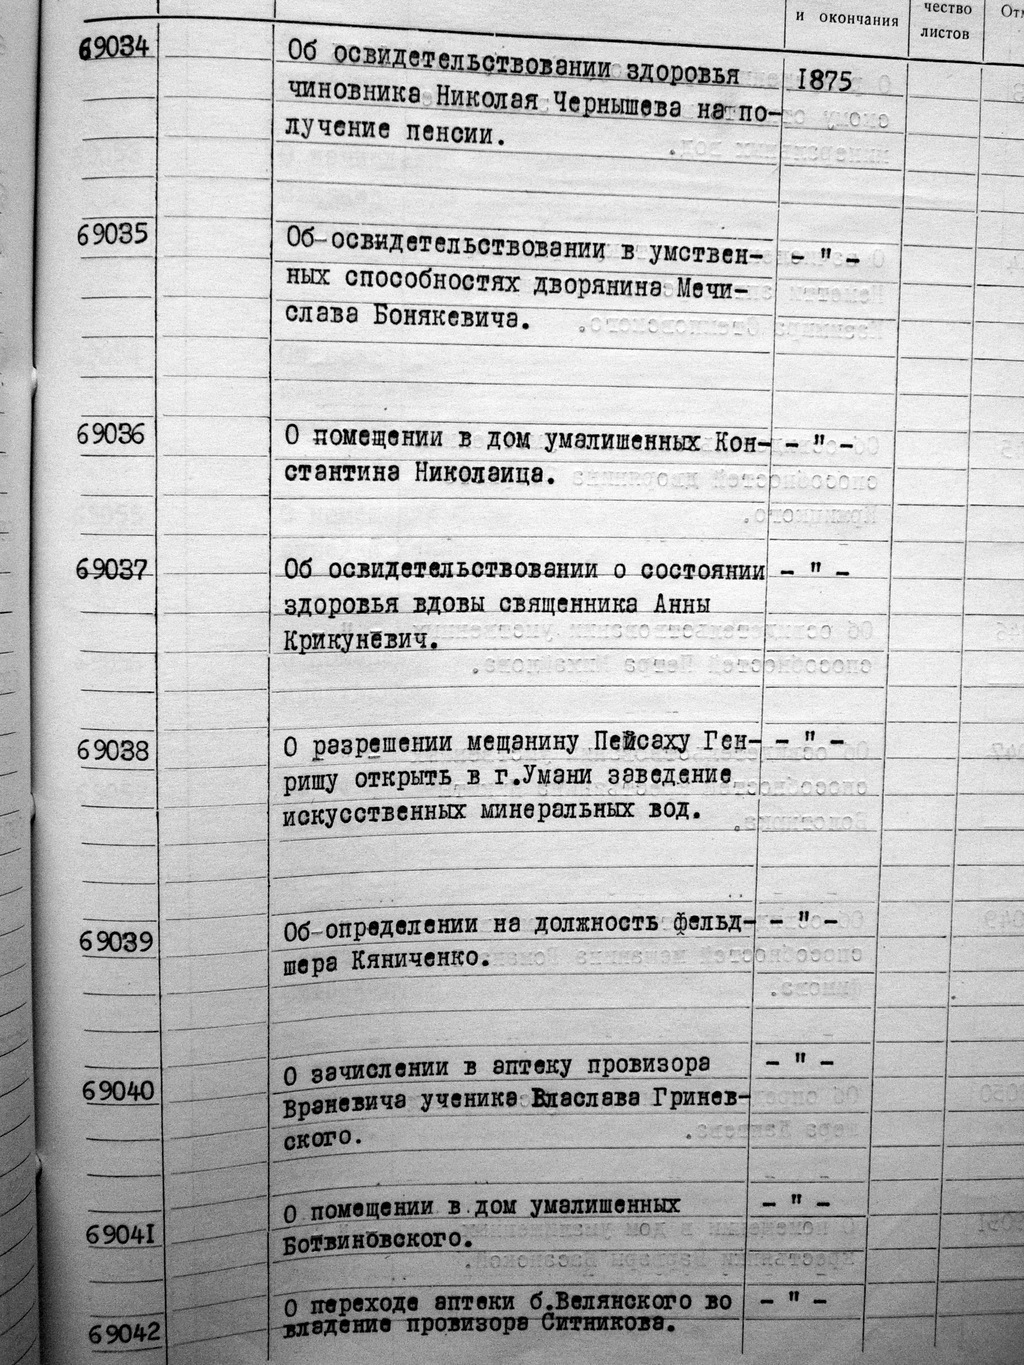 и окончания
чество
листов
69034
Об освидетельствовании здоровья
1875
чиновника Николая Чернышева на по-
лучение пенсии.
69035
Об освидетельствовании в умствен-
- " -
ных способностях дворянина Мечи-
слава Бонякевича.
69036
О помещении в дом умалишенных Кон-
- " -
стантина Николаица.
69037
Об освидетельствовании о состоянии
- " -
здоровья вдовы священника Анны
Крикуневич.
69038
О разрешении мещанину Пейсаху Ген-
- " -
ришу открыть в г.Умани заведение
искусственных минеральных вод.
69039
Об определении на должность фельд-
- " -
шера Кяниченко.
69040
О зачислении в аптеку провизора
- " -
Враневича ученика Власлава Гринев-
ского.
69041
О помещении в дом умалишенных
- " -
Ботвиновского.
69042
О переходе аптеки б.Велянского во
- " -
владение провизора Ситникова.